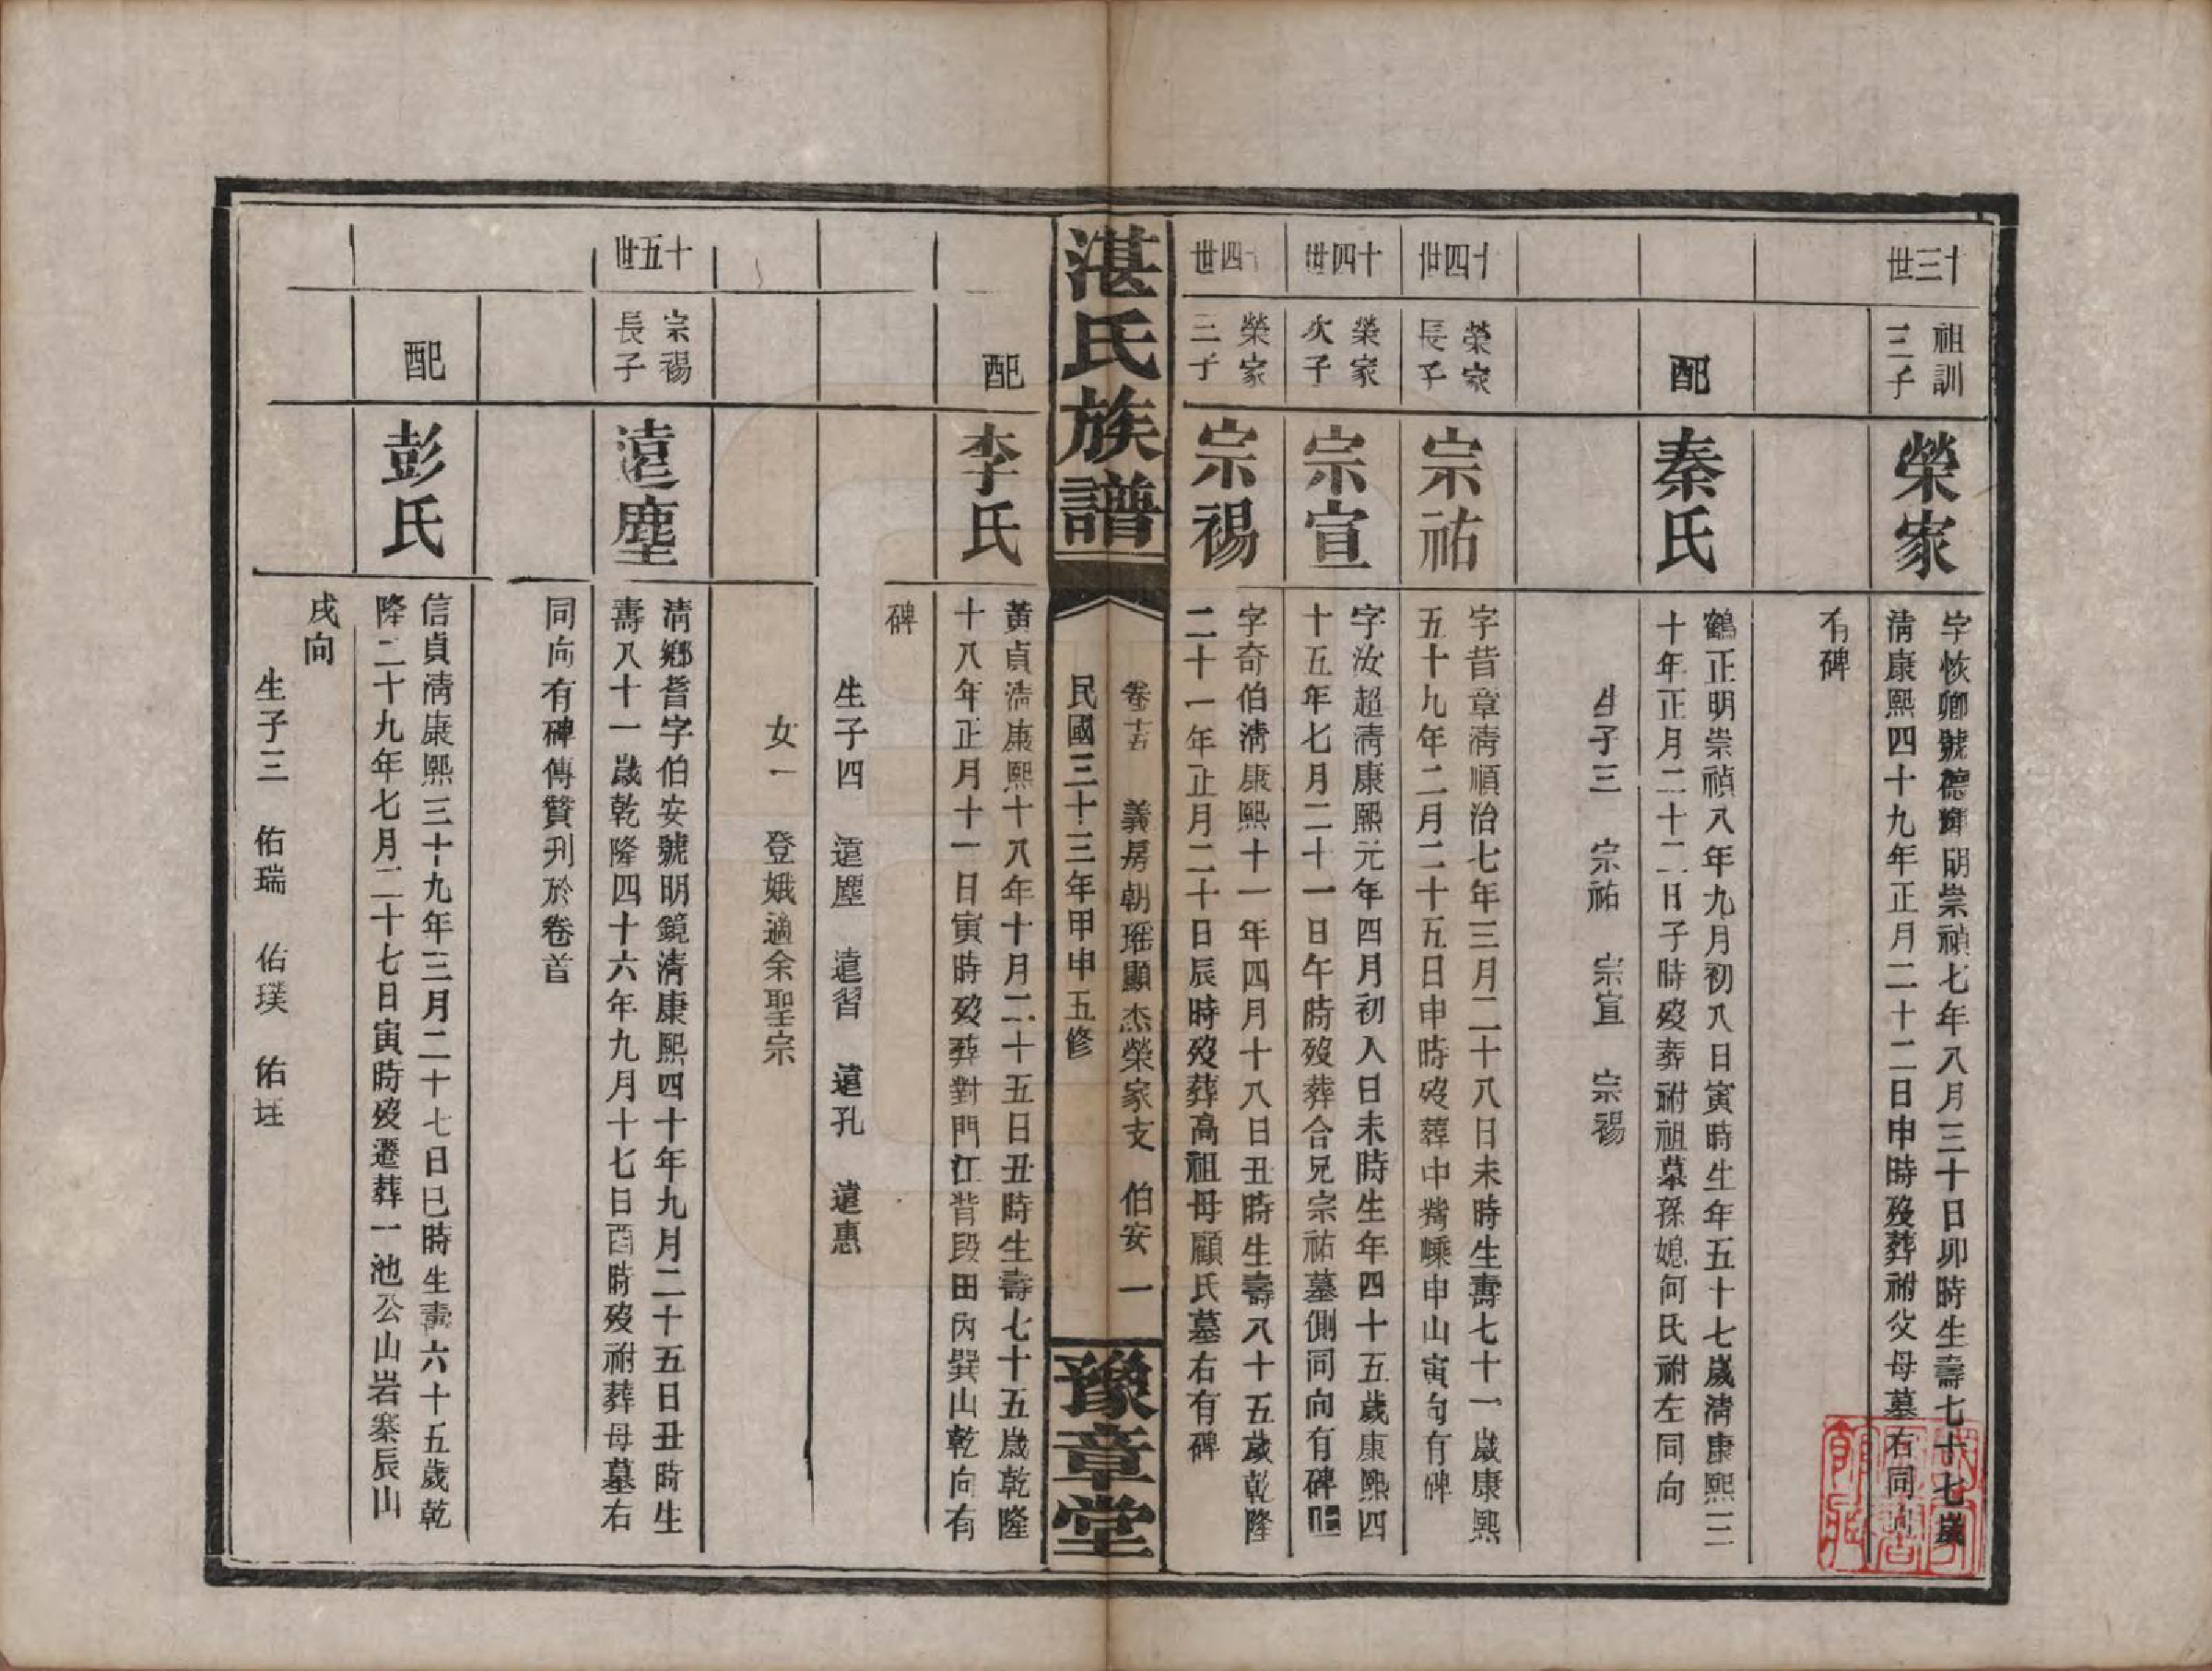 十三世
祖訓三子
榮家
字恢卿號德輝明崇禎七年八月三十日卯時生壽七十七歲
清康熙四十九年正月二十二日申時歿葬祔父母墓右同向
有碑
配
秦氏
鶴正明崇禎八年九月初八日寅時生年五十七歲清康熙三
十年正月二十二日子時歿葬祔祖墓孫媳何氏祔左同向
生子三 宗祐 宗宣 宗禓
十四世
榮家長子
宗祐
字昔章清順治七年三月二十八日未時生壽七十一歲康熙
五十九年二月二十五日申時歿葬中嘴嵊申山寅向有碑
十四世
榮家次子
宗宣
字汝超清康熙元年四月初八日未時生年四十五歲康熙四
十五年七月二十一日午時歿葬合兄宗祐墓側同向有碑
十四世
榮家三子
宗禓
字奇伯清康熙十一年四月十八日丑時生壽八十五歲乾隆
二十一年正月二十日辰時歿葬高祖母顧氏墓右有碑
湛氏族譜
卷 義房朝瑶顯杰榮家支 伯安 一
民國三十三年甲申五修
豫章堂
配
李氏
黃貞清康熙十八年十月二十五日丑時生壽七十五歲乾隆
十八年正月十一日寅時歿葬對門江背段田內巽山乾向有
碑
生子四 遠塵 遠習 遠孔 遠惠
女一 登娥適余聖宗
十五世
宗禓長子
遠塵
清鄉耆字伯安號明鏡清康熙四十年九月二十五日丑時生
壽八十一歲乾隆四十六年九月十七日酉時歿祔葬母墓右
同向有碑傳贊刋於卷首
配
彭氏
信貞清康熙三十九年三月二十七日巳時生壽六十五歲乾
隆二十九年七月二十七日寅時歿遷葬一池公山岩寨辰山
戌向
生子三 佑瑞 佑璞 佑玨